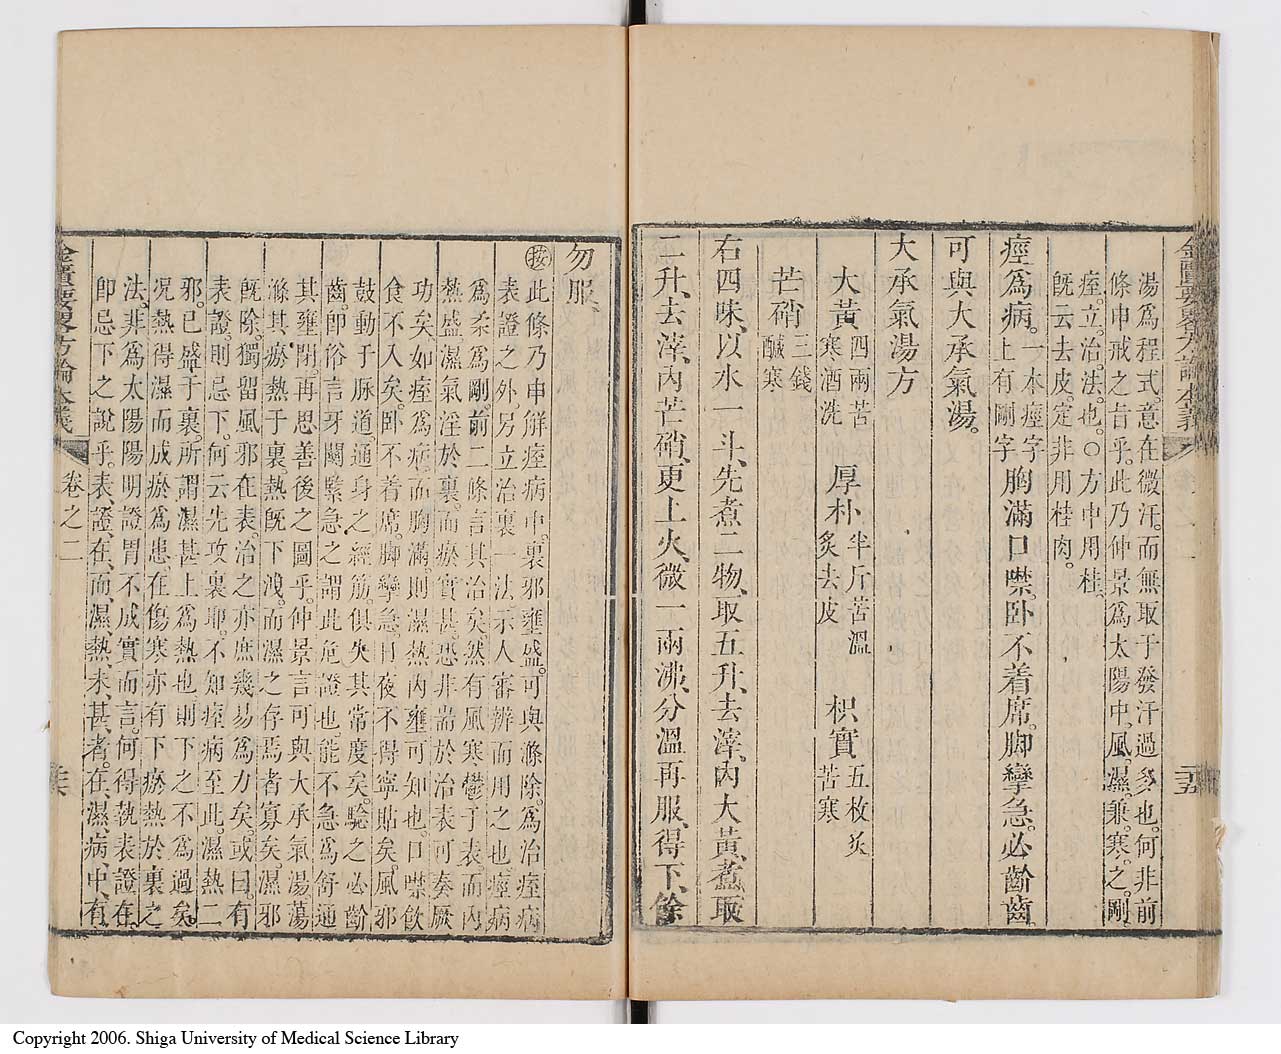 金匱要略方論本義
湯爲程式意在微汗而無取于發汗過多也何非前
條申戒之旨乎此乃仲景爲太陽中風濕兼寒之剛
痙立治法也〇方中用桂
旣云去皮定非用桂肉
痙爲病一本痙字上有剛字胸滿口噤卧不着席脚攣急必齘齒
可與大承氣湯
大承氣湯方
大黃四兩苦寒酒洗 厚朴半斤苦溫炙去皮 枳實五枚炙苦寒
芒硝三錢鹹寒
右四味以水一斗先煮二物取五升去滓內大黃煮取
二升去滓內芒硝更上火微一兩沸分溫再服得下餘
勿服
按此條乃申解痙病中裏邪壅盛可與滌除爲治痙病
表證之外另立治裏一法示人審辨而用之也痙病
爲柔爲剛前二條言其治矣然有風寒鬱于表而內
熱盛濕氣淫於裏而瘀實甚恐非耑於治表可奏厥
功矣如痙爲病而胸滿則濕熱內壅可知也口噤飲
食不入矣卧不着席脚攣急日夜不得寧貼矣風邪
鼓動于脉道通身之經筋俱失其常度矣驗之必齘
齒卽俗言牙關緊急之謂此危證也能不急爲舒通
其壅閉再思善後之圖乎仲景言可與大承氣湯蕩
滌其瘀熱于裏熱旣下洩而濕之存焉者寡矣濕邪
旣除獨留風邪在表治之亦庶幾易爲力矣或曰有
表證則忌下何云先攻裏耶不知痙病至此濕熱二
邪已盛于裏所謂濕甚上爲熱也則下之不爲過矣
况熱得濕而成瘀爲患在傷寒亦有下瘀熱於裏之
法非爲太陽陽明證胃不成實而言何得執表證在
卽忌下之說乎表證在而濕熱未甚者在濕病中有
金匱要略方論本義 卷之二
Copyright 2006. Shiga University of Medical Science Library